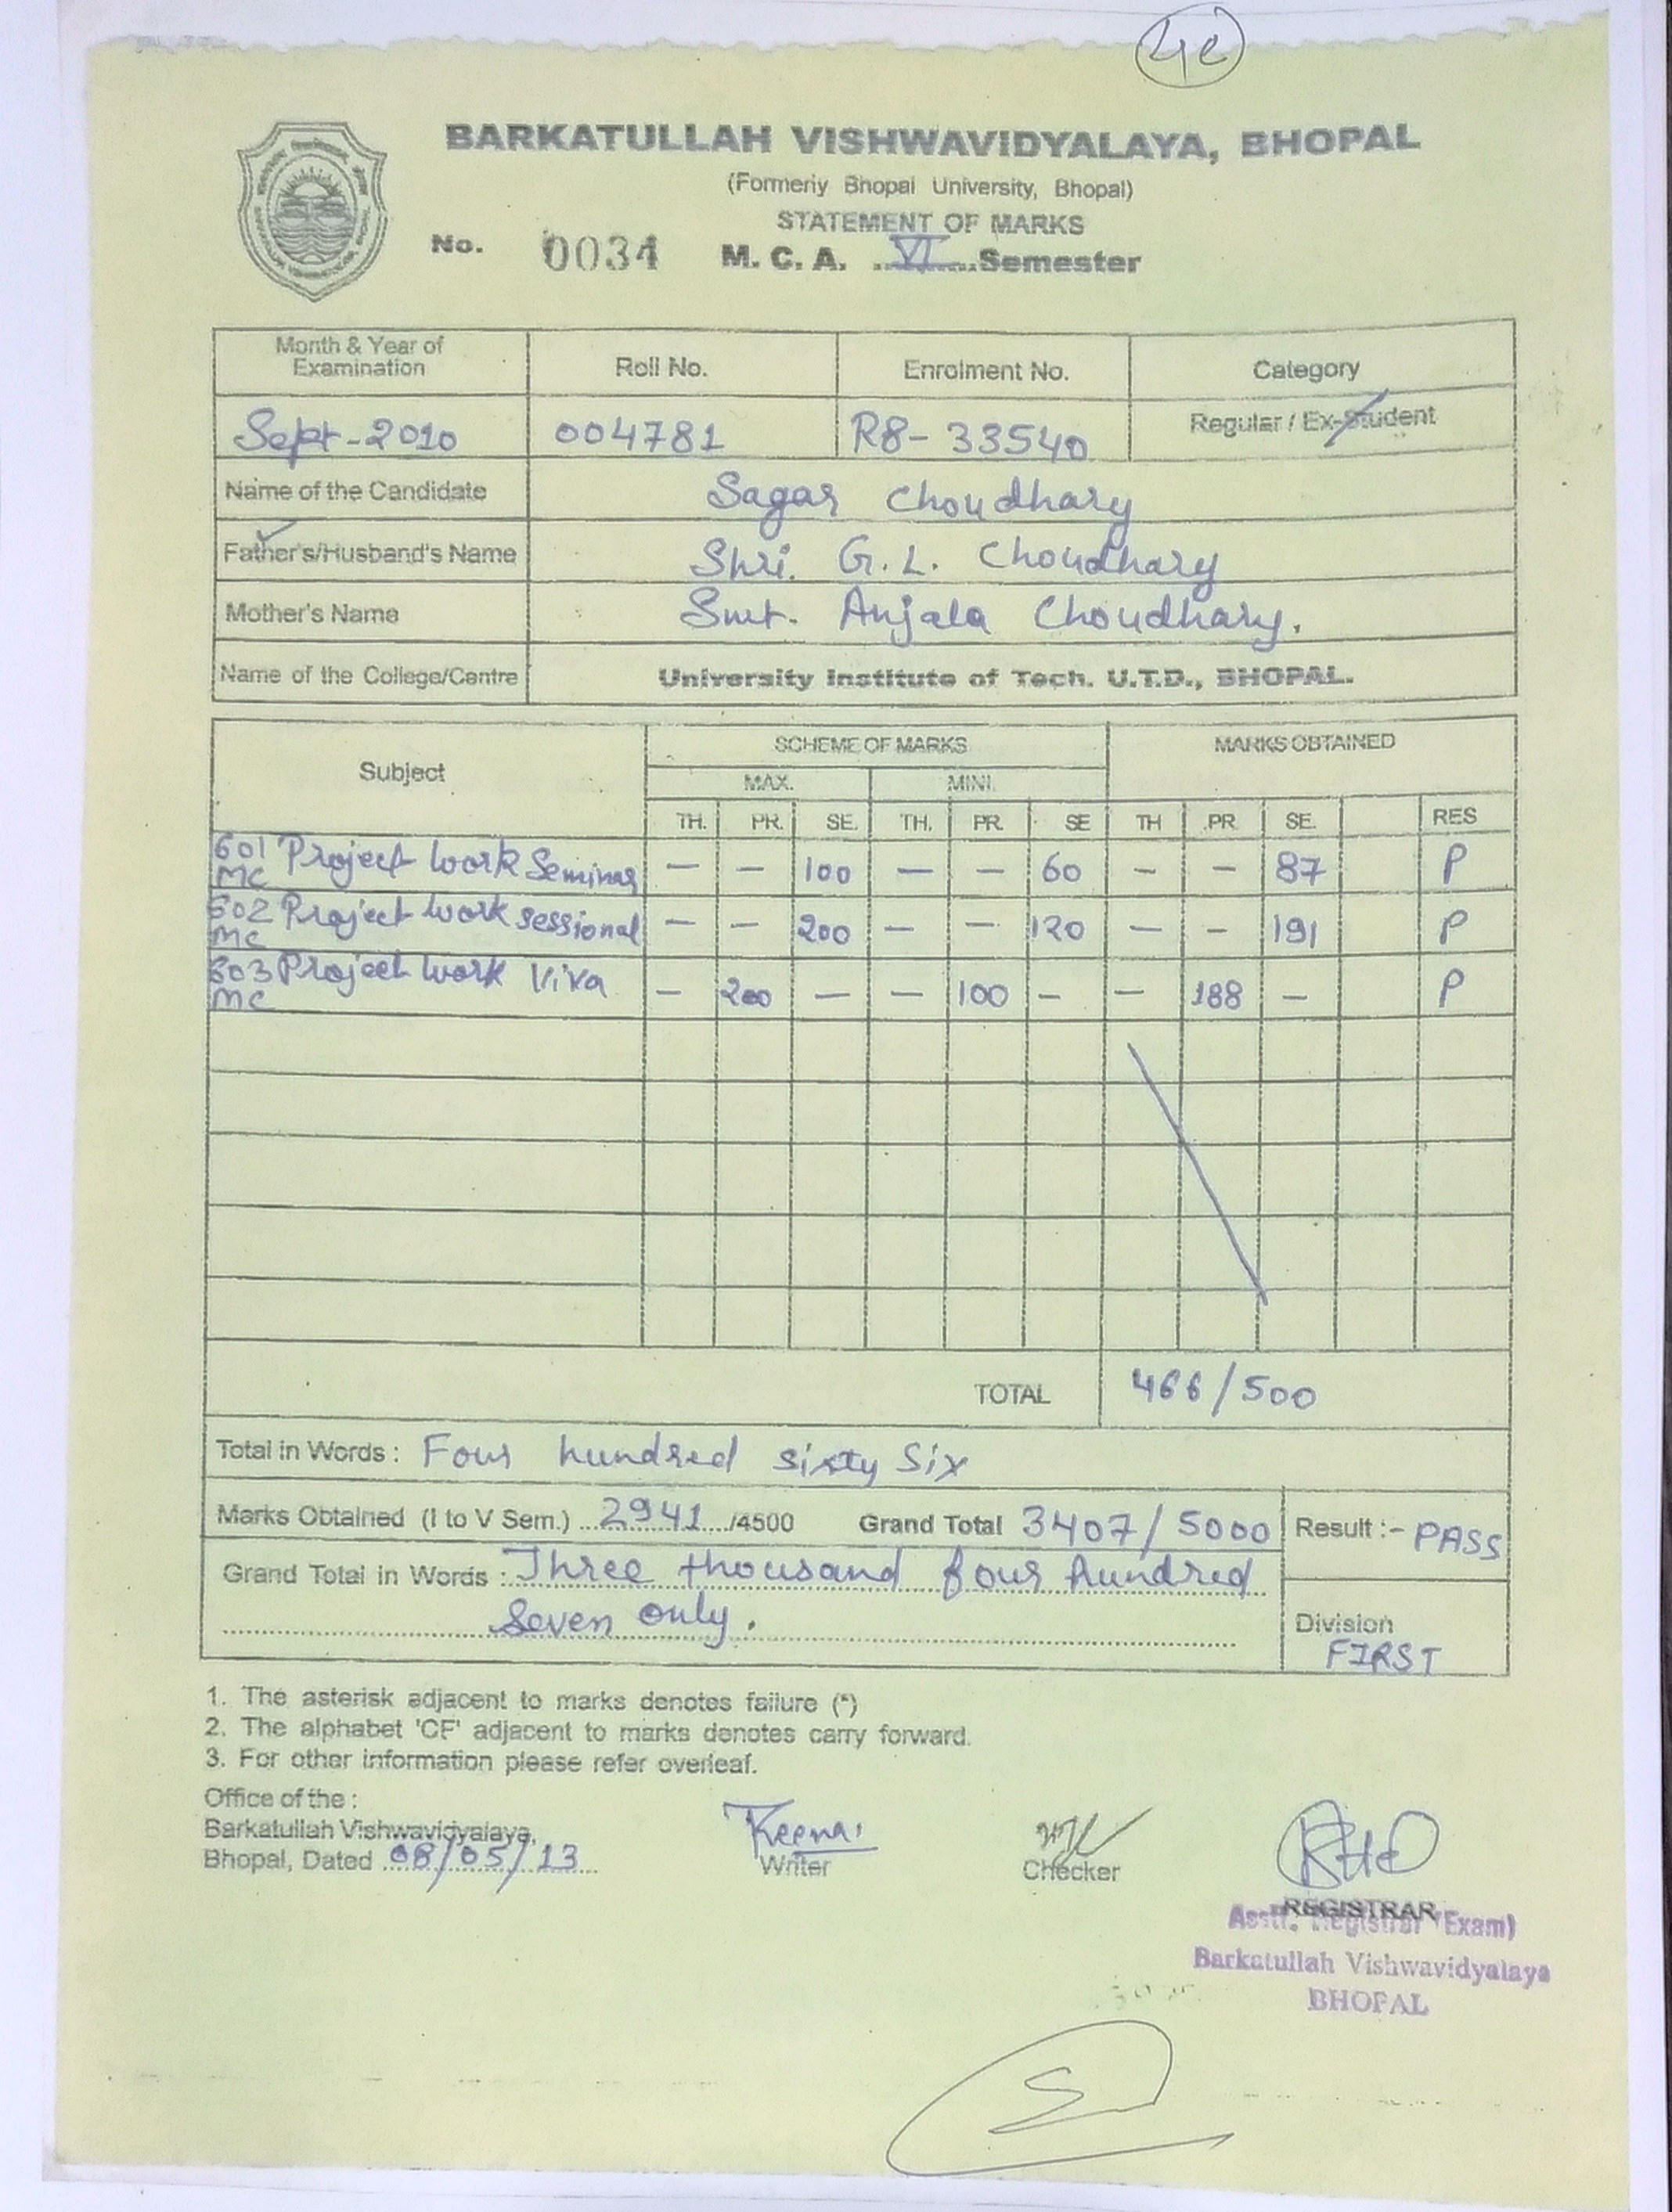 4e
BARKATULLAH VISHWAVIDYALAYA, BHOPAL
(Formerly Bhopal University, Bhopal)
STATEMENT OF MARKS
No. 0034 M. C. A. ..VI..Semester
Month & Year of Examination Roll No. Enrolment No. Category
Sept-2010 004781 R8-33540 Regular / Ex-Student
Name of the Candidate Sagar Choudhary
Father's/Husband's Name Shri. G. L. Choudhary
Mother's Name Smt. Anjala Choudhary.
Name of the College/Centre University Institute of Tech. U.T.D., BHOPAL.
Subject SCHEME OF MARKS MARKS OBTAINED
MAX. MINI.
TH. PR. SE. TH. PR. SE TH PR SE. RES
601 MC Project work Seminar — — 100 — — 60 — — 87 P
602 MC Project work sessional — — 200 — — 120 — — 191 P
603 MC Project work Viva — 200 — — 100 — — 188 — P
TOTAL 466/500
Total in Words : Four hundred sixty Six
Marks Obtained (I to V Sem.) 2941 /4500 Grand Total 3407/5000 Result :- PASS
Grand Total in Words : Three thousand four hundred
Seven only.
Division
FIRST
1. The asterisk adjacent to marks denotes failure (*)
2. The alphabet 'CF' adjacent to marks denotes carry forward.
3. For other information please refer overleaf.
Office of the :
Barkatullah Vishwavidyalaya,
Bhopal, Dated 08/05/13
Writer Checker
REGISTRAR
Asstt. Registrar (Exam)
Barkatullah Vishwavidyalaya
BHOPAL